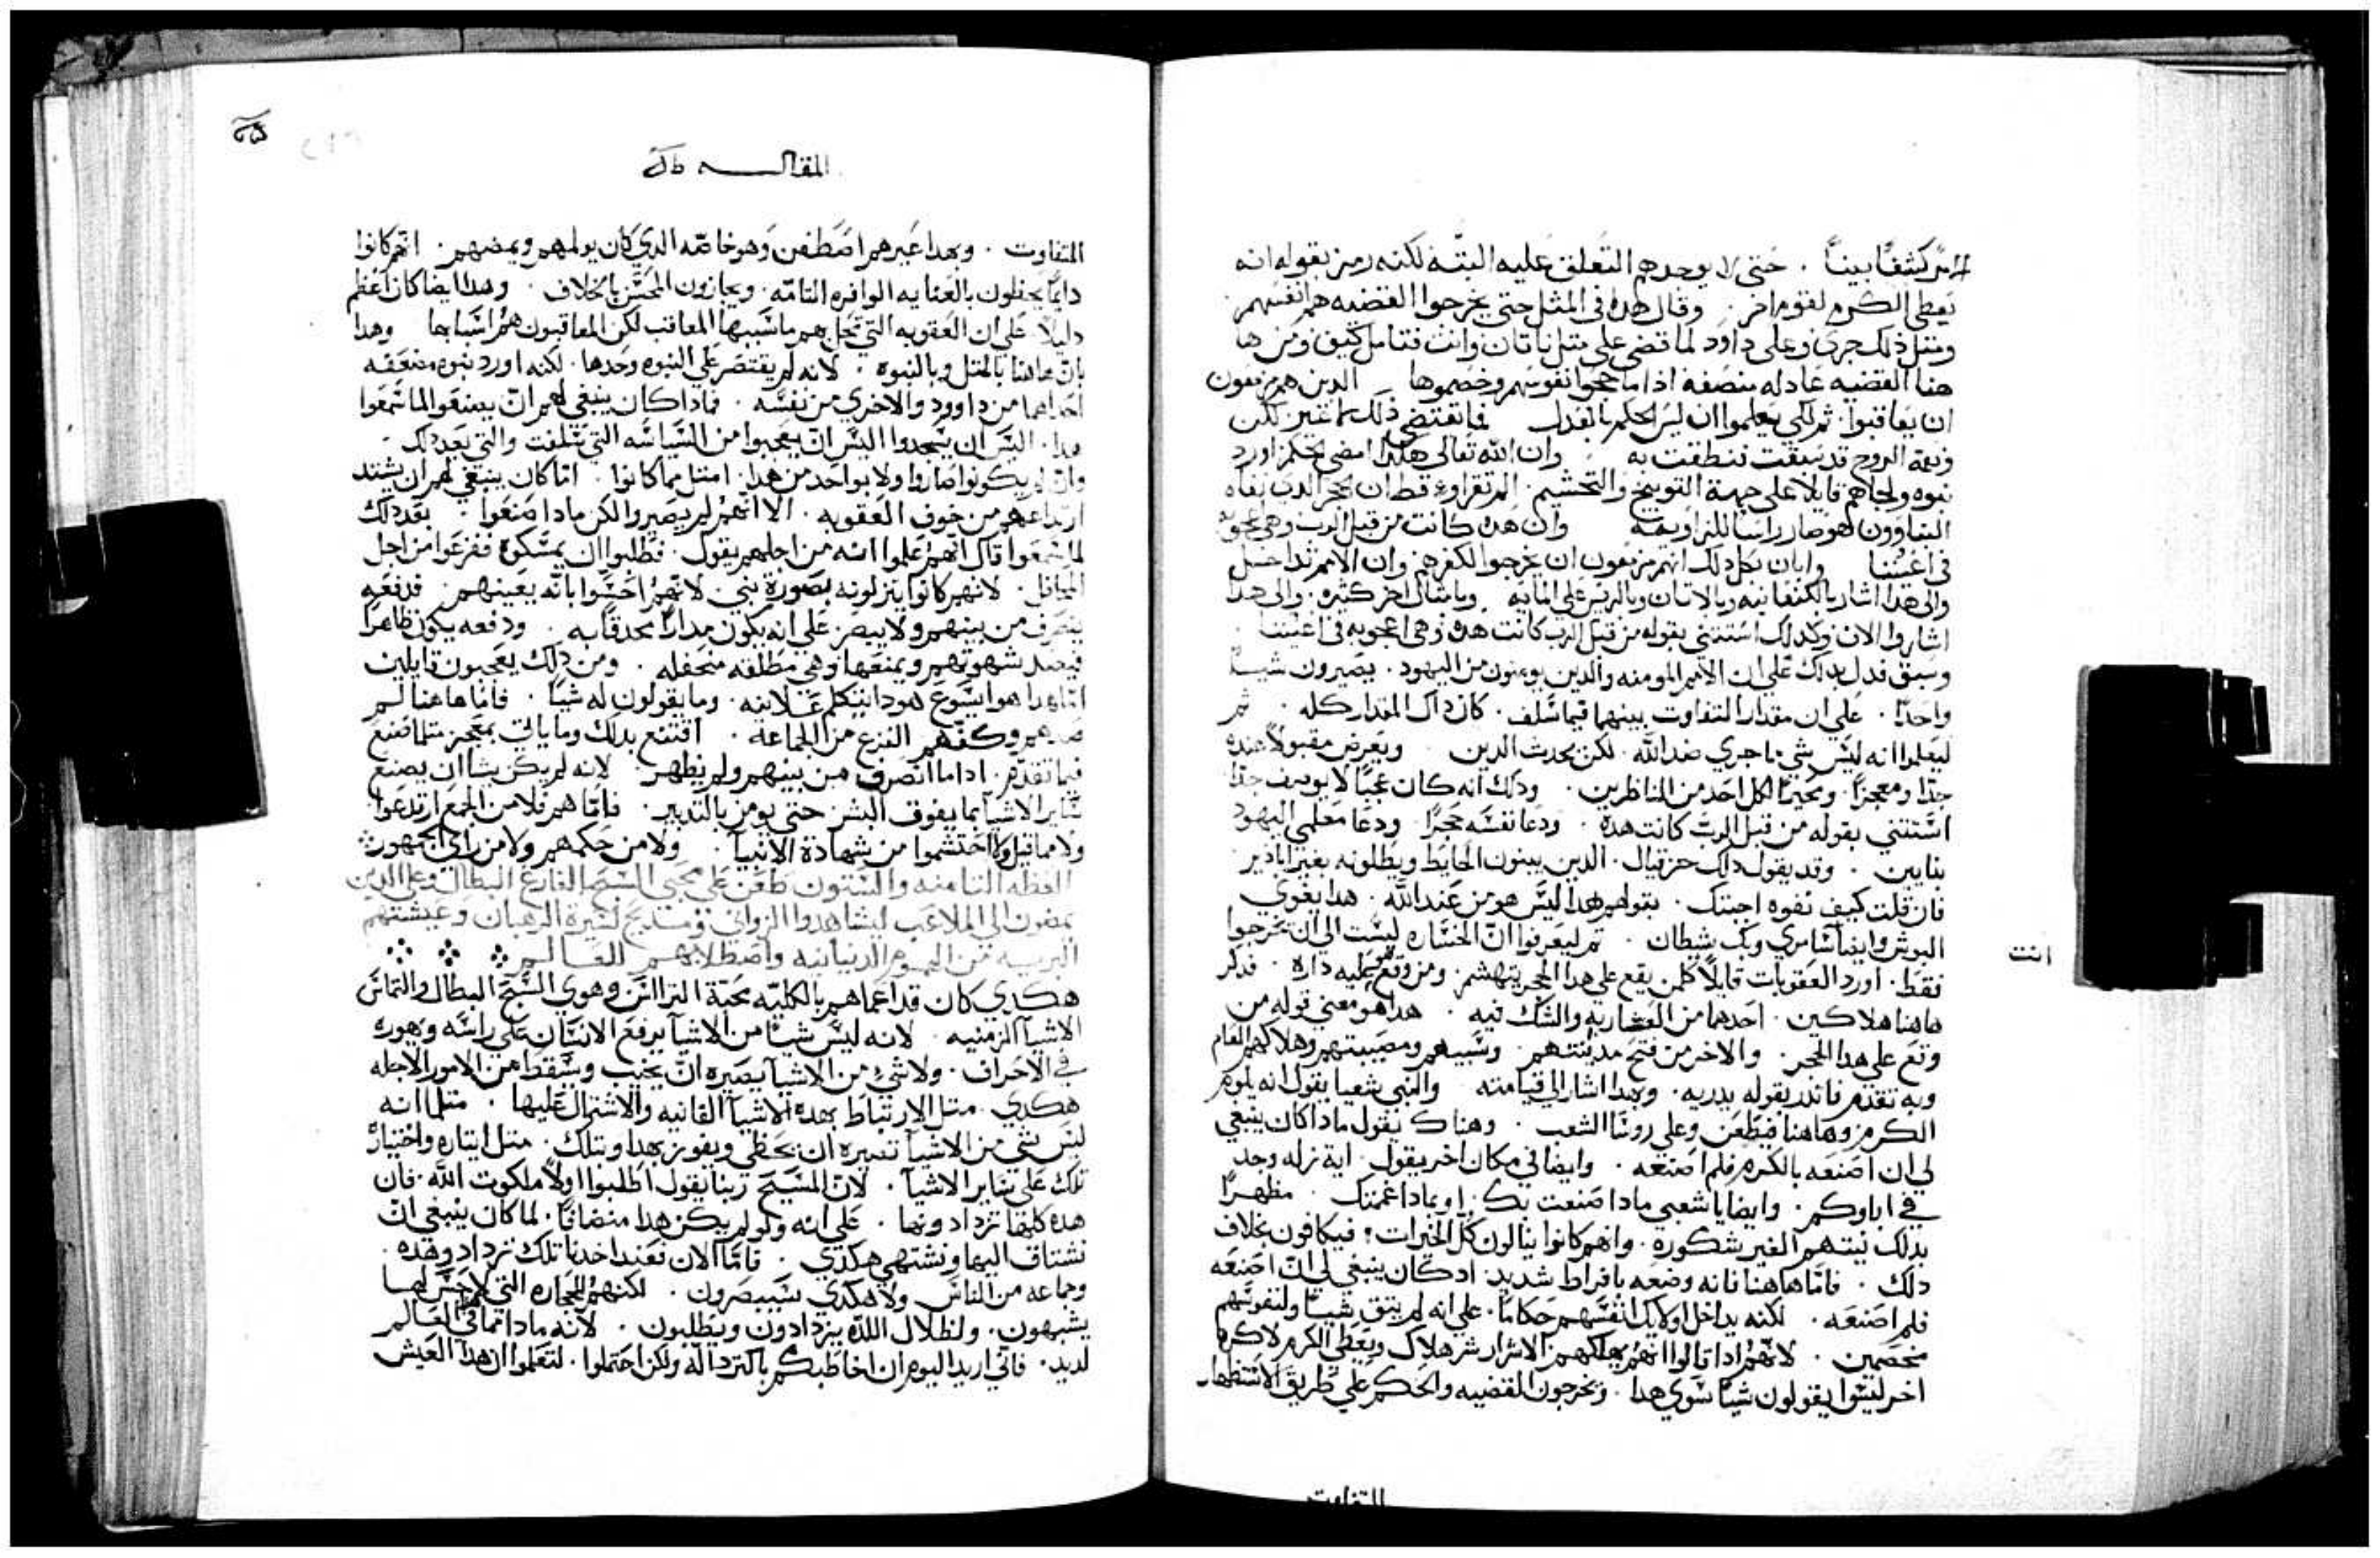 كشفًا بينًا . حتى لا يوجدهم التعلق عليه البتة لكنه رمز بقوله انه
يعطى الكرم لقوم اخر . وقال هذا في المثل حتى يخرجوا القضيه هم انفسهم
ومثل ذلك جرى وعلى داود لما قضى على مثل ناتان وانت فتامل كيف ومن ها
هنا القضيه عادله منصفه اذا ما حجوا نفوسهم وخصموها الدين هم مزمعون
ان يعاقبوا . ثم لكي يعلموا ان ليس الحكم بالعدل يقتضي ذلك غير لكن
ونعمة الروح قد سبقت فنطقت به وان الله تعالى هكذا امضى الحكم اورد
نبوه ولجاهم قايلا على جهة التوبيخ والتحشيم . الم تقراوا قط ان الحجر الذي نفاه
البناوون هو صار راسا للزاويه وان هده كانت من قبل الرب وهي عجوبه
في اعيننا وابان بكل دلك انهم مزمعون ان يخرجوا لكفرهم وان الامم تداخل
والى هدا اشار بالكنعانيه وبالاتان وبالريس على المايه وبامثال اخر كثيره . والى هدا
اشاروا الان وكدلك استتنى بقوله من قبل الرب كانت هده وهي اعجوبه في اعيننا
وسبق فدل بدلك على ان الامم المومنه والدين يومنون من اليهود . يصيرون شيا
واحدًا . على ان مقدار التفاوت بينهما فيما سلف . كان داك المقدار كله . ثم
ليعلموا انه ليس شي ما جري ضد الله . لكن يحدث الدين ويعرض مقبولا عنده
جدا ومعجزا . ومحيرا لكل احد من الناظرين . ودلك انه كان عجبا لا يوصف جدا
استتنى بقوله من قبل الرب كانت هده . ودعا نفسه حجرا ودعا معلمي اليهود
بنايين . وقد يقول داك حزقيال . الدين يبنون الحايط ويطلونه بغير
فان قلت كيف نفوه اجبتك . بقولهم هدا ليس هو من عند الله . هدا يغوي
البوش وايضا سامري وبك شيطان . ثم ليعرفوا ان الخساره ليست الى ان يخرجوا
انت
فقط . اورد العقوبات قايلا كل من يقع على هدا الحجر يتهشم . ومن وقع هو عليه داره . فدكر
هاهنا هلاكين . احدهما من العثار به والشك فيه . هدا هو معنى قوله من
وقع على هدا الحجر . والاخر من فتح مدينتهم . وسبيهم ومصيبتهم وهلاكهم العام
وبه تقدم فاندر بقوله يدريه . وبهدا اشار الى قيامته والنبي شعيا يقول انه يلوم
الكرم وهاهنا فيطعن وعلى روسا الشعب . وهناك يقول مادا كان ينبغي
لي ان اصنعه بالكرم فلم اصنعه . وايضا في مكان اخر يقول . اية زله وجد
في اباوكم . وايضا يا شعبي مادا صنعت بك . او بمادا غممتك . مظهرًا
بدلك نيتهم الغير شكوره . وانهم كانوا ينالون كل الخيرات ؛ فيكافون بخلاف
دلك . فاما هاهنا فانه وضعه بافراط شديد . اد كان ينبغي لي ان اصنعه
فلم اصنعه . لكنه يداخل اوليك انفسهم حكاما . على انه لم يتق شيا ولنفوسهم
مخصمين . لانهم ادا قالوا انهم يهلكهم الاشرار شر هلاك ويعطي الكرم لاكره
اخر ليسوا يقولون شيا سوي هدا . ويخرجون القضيه والحكم على طريق الاستظهار
التفاوت
المقالـــه
التفاوت . وبهدا غيرهم اصطفن وهو خاصه الدي كان يولمهم ويمضهم . انهم كانوا
دايما يحظون بالعنايه الوافره التامه . ويجازون المحسن بالخلاف . وهدا ايضا كان اعظم
دليلا على ان العقوبه التي تحل بهم ما سببها المعاقب لكن المعاقبون هم اسبابها وهدا
بان هاهنا بالمثل وبالنبوه . لانه لم يقتصر على النبوه وحدها . لكنه اورد نبوه مضعفه
احداهما من داوود والاخري من نفسه . فمادا كان ينبغي لهم ان يصنعوا لما سمعوا
هدا . اليس ان يسجدوا اليس ان يعجبوا من السياسه التي سلفت والتي بعد دلك .
وان لم يكونوا صاروا ولا بواحد من هدا . امثل مما كانوا . اما كان ينبغي لهم ان يشتد
ارتداعهم من خوف العقوبه . الا انهم لم يصيروا لكن مادا صنعوا . بعد دلك
لما سمعوا قال انهم علموا انه من اجلهم يقول . فطلبوا ان يمسكوه ففزعوا من اجل
المحافل . لانهم كانوا ينزلونه بصورة نبي لانهم احسوا بانه يعينهم . فدفعه
ينصرف من بينهم ولا يبصر على انه يكون مدارا محدقا به . ودفعه يكون ظاهرا
فيصد شهوتهم ويمنعها وهي مطلقه متحفله . ومن دلك يعجبون قايلين
اما هدا هو ايسوع هودا يتكلم علانيه . وما يقولون له شيا . فاما هاهنا لم
صدهم وكفهم الفزع من الجماعه . اقتنع بدلك وما ياتي بمعجز مثلما صنع
فيما تقدم . ادا ما انصرف من بينهم ولم يظهر لانه لم يكن يشا ان يصنع
ساير الاشيا بما يفوق البشر حتى يومن بالتدبير . فاما هم فلا من الجمع ارتدعوا
ولا مما قيل ولا احتشموا من شهادة الانبيا . ولا من حكمهم ولا من راي الجمهور
العظه التامنه والستون طعن على محبي السبح الفارغ البطال وعلى الدين
يمضون الى الملاعب ليشاهدوا الزواني ومتديح لسيرة الرهبان وعيشتهم
البريه من الهموم الدنيانيه واصطلابهم العالم
هكدي كان قد اعماهم بالكليه محبة التراس وهوي السبح البطال والتماس
الاشيا الزمنيه . لانه ليس شيا من الاشيا يرفع الانسان على راسه وهوره
في الاجراف . ولا شي من الاشيا يصيره ان يخيب ويسقط من الامور الاجله
هكدي . مثل الارتباط بهده الاشيا الفانيه والاشتمال عليها . مثلما انه
ليس شي من الاشيا تصيره ان يحظى ويفوز بهدا وبتلك . مثل ايتاره واختيار
تلك على ساير الاشيا . لان المسيح ربنا يقول اطلبوا اولا ملكوت الله . فان
هده كلها تزدادونها . على انه ولو لم يكن هدا منضافا . لما كان ينبغي ان
نشتاق اليها ونشتهي هكدي . فاما الان فعند اخدنا تلك تزداد وهده .
وجماعه من الناس ولا هكدي سيبصرون . لكنهم للحجاره التي لا حس لها
يشبهون . ولظلال اللده يزدادون ويطلبون . لانه مادا مما في العالم
لديد . فاني اريد اليوم ان اخاطبكم باكتر داله ولكن احتملوا . لتعلموا ان هدا العيش